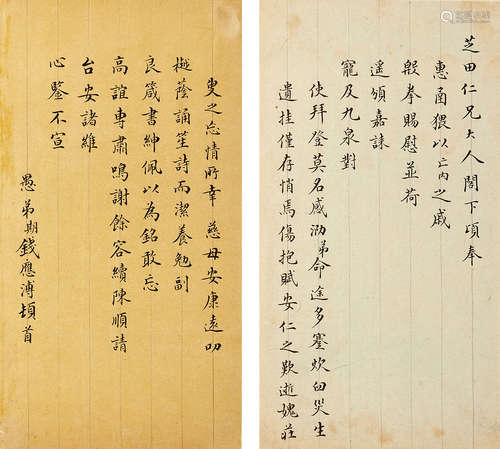 芝田仁兄大人閣下頃奉
惠函猥以亡內之戚
殷拳賜慰並荷
遥頒嘉誄
寵及九泉對
使拜登莫名感泐弟命途多蹇炊臼災生
遺挂僅存悄焉傷抱賦安仁之歎逝媿莊
叟之忘情所幸慈母安康遠叨
樾蔭誦笙詩而潔養勉副
良箴書紳佩以為銘敢忘
高誼專肅鳴謝餘容續陳順請
台安諸維
心鑒不宣
愚弟期錢應溥頓首